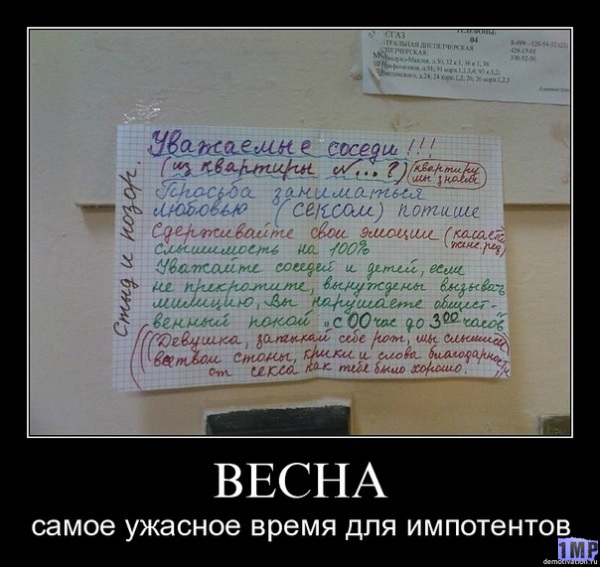 СГАЗ
04
Уважаемые соседи!!!
(из квартиры №...?) (квартиру мы знаем)
Просьба заниматься
любовью (сексом) потише
Сдерживайте свои эмоции (касается женс. род)
слышимость на 100%
Уважайте соседей и детей, если
не прекратите, вынуждены вызывать
милицию, Вы нарушаете общест-
венный покой „с 00 час до 3 00 часов"
Девушка, затыкай себе рот, мы слышим
все твои стоны, крики и слова благодарнос
от секса как тебе было хорошо.
Стыд и позор.
ВЕСНА
самое ужасное время для импотентов
1MP
demotivation.ru